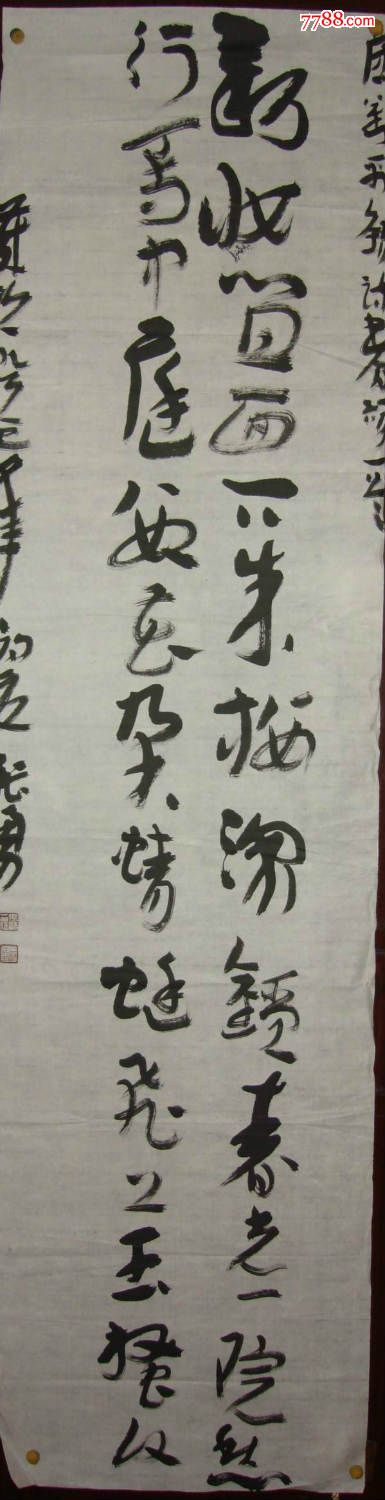 7788.com
中国收藏热线
唐刘禹锡诗春词一首
新妝宜面下朱楼深锁春光一院愁
行到中庭数花朵蜻蜓飞上玉搔头